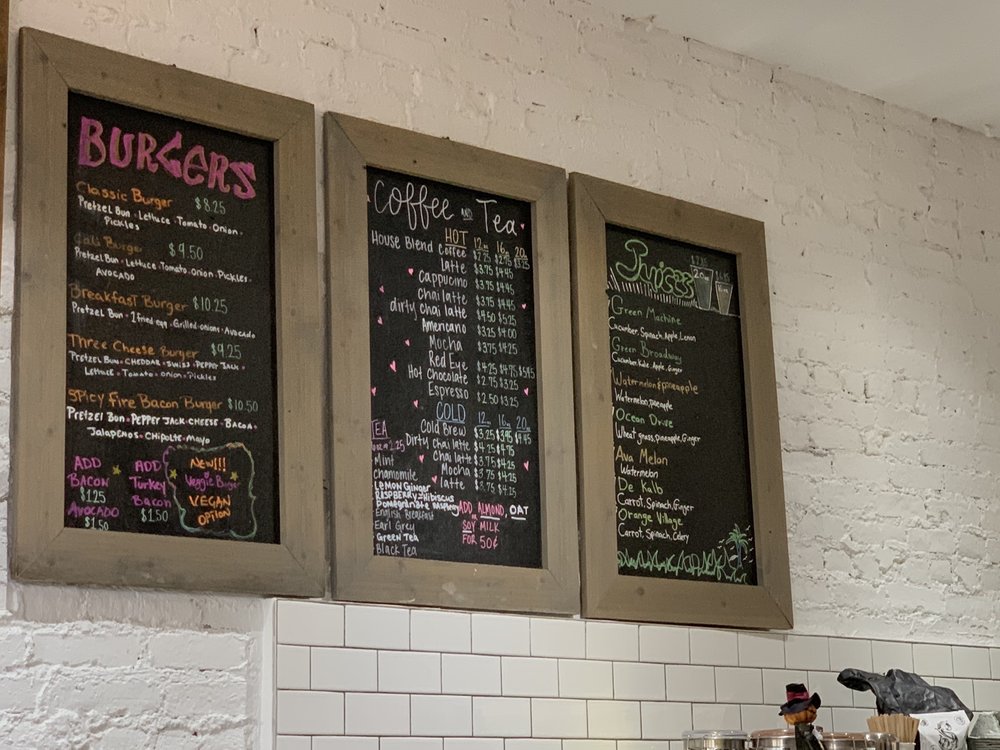 BURGERS
Classic Burger $8.25
Pretzel Bun · Lettuce · Tomato · Onion ·
Pickles
Cali Burger $9.50
Pretzel Bun · Lettuce · Tomato · onion · Pickles ·
Avocado
Breakfast Burger $10.25
Pretzel Bun · 1 fried egg · Grilled-onions · Avocado
Three Cheese Burger $9.25
Pretzel Bun · CHEDDAR · SWISS · PEPPER JACK ·
Lettuce · Tomato · Onion · Pickles
SPicy Fire Bacon Burger $10.50
Pretzel Bun · PEPPER JACK-CHEESE · BACON ·
Jalapenos · Chipolte · Mayo
ADD
BACON
$1.25
AVOCADO
$1.50
ADD
Turkey
Bacon
$1.50
NEW!!!
Veggie Burger
VEGAN
OPTION
Coffee AND Tea
HOT 12oz 16oz 20oz
House Blend Coffee $2.25 $2.75 $3.25
Latte $3.75 $4.45
Cappucino $3.75 $4.45
Chai latte $3.75 $4.45
dirty Chai latte $4.50 $5.25
Americano $3.25 $4.00
Mocha $3.75 $4.25
Red Eye $4.25 $4.75
Hot Chocolate $2.75 $3.25
Espresso $2.50 $3.25
COLD 12oz 16oz 20oz
Cold Brew $3.25 $3.95 $4.45
Dirty chai latte $4.25 $4.75
Chai latte $3.75 $4.25
Mocha $3.75 $4.25
latte $3.75 $4.25
TEA
2.25
Mint
Chamomile
LEMON GINGER
RASPBERRY-Hibiscus
Pomegranate Raspberry
English Breakfast
Earl Grey
Green Tea
Black Tea
ADD ALMOND, OAT
OR
SOY MILK
FOR 50¢
Juices
20oz
Green Machine
Cucumber, Spinach, Apple, Lemon
Green Broadway
Cucumber, Kale, Apple, Ginger
Watermelon & pineapple
Watermelon, pineapple
Ocean Drive
Wheat grass, pineapple, Ginger
Ava Melon
Watermelon
De Kalb
Carrot, Spinach, Ginger
Orange Village
Carrot, Spinach, Celery